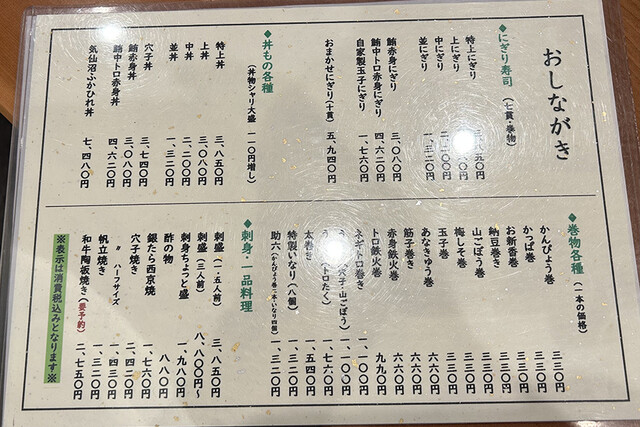 おしながき
◆にぎり寿司（七貫・巻物）
特上にぎり 三、八五〇円
上にぎり
中にぎり 二、二〇〇円
並にぎり 一、三二〇円
鮪赤身にぎり 三、〇八〇円
鮪中トロ赤身にぎり 四、六二〇円
自家製玉子にぎり 一、七六〇円
おまかせにぎり（十貫） 五、九四〇円
◆丼もの各種
（丼物シャリ大盛 一一〇円増し）
特上丼 三、八五〇円
上丼 三、〇八〇円
中丼 二、二〇〇円
並丼 一、三二〇円
穴子丼 三、七四〇円
鮪赤身丼 三、〇八〇円
鮪中トロ赤身丼 四、六二〇円
気仙沼ふかひれ丼 七、四八〇円
◆巻物各種（一本の価格）
かんぴょう巻 三三〇円
かっぱ巻 三三〇円
お新香巻 三三〇円
納豆巻き 三三〇円
山ごぼう巻 三三〇円
梅しそ巻 三三〇円
玉子巻 三三〇円
あなきゅう巻 六六〇円
筋子巻き 六六〇円
赤身鉄火巻 六六〇円
トロ鉄火巻 九九〇円
ネギトロ巻き 一、一〇〇円
（穴子・山ごぼう） 一、一〇〇円
（トロたく） 一、七六〇円
太巻き 一、五四〇円
特製いなり（八個） 一、三二〇円
助六（かんぴょう巻一本・いなり四個） 一、三二〇円
◆刺身・一品料理
刺盛（一・五人前） 三、八五〇円
刺盛（三人前） 八、八〇〇円〜
刺身ちょっと盛 一、九八〇円
酢の物 八八〇円
銀たら西京焼 一、七六〇円
穴子焼き 二、四二〇円
〃 ハーフサイズ 一、四三〇円
帆立焼き 一、三二〇円
和牛陶板焼き（要予約） 二、七五〇円
※表示は消費税込みとなります※